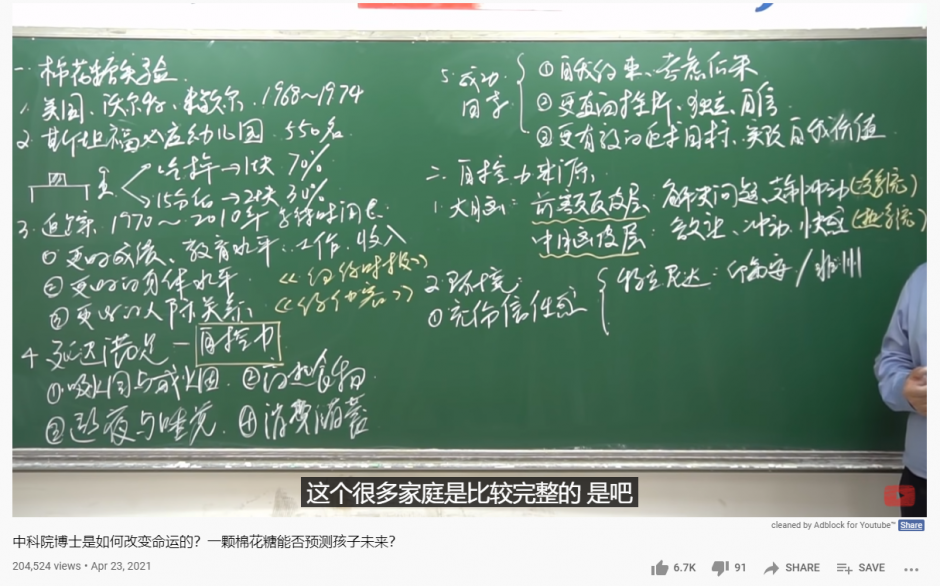 一、棉花糖实验
1. 美国、沃尔特、米歇尔、1968~1974
2. 斯坦福必应幼儿园 550名
吃掉→1块 70%
15分后→2块 30%
3. 追踪 1970~2010年
①更好成绩、教育水平、工作、收入
②更好的身体水平
③更好的人际关系
《纽约时报》
《纽约客》
4. 延迟满足—自控力
①吸烟与戒烟 ②食物
③熬夜与睡觉 ④消费
5. 成功因子
①自我约束、考虑后果
②更直面挫折、独立、自信
③更有效的追求目标、实现自我价值
二、自控力来源
1. 大脑: 前额叶皮层: 解决问题、克制冲动(冷系统)
中脑皮层: 、冲动、快(热系统)
2. 环境:
①充你信任感
特立尼达: /非洲
这个很多家庭是比较完整的 是吧
cleaned by Adblock for Youtube™ Share
中科院博士是如何改变命运的？一颗棉花糖能否预测孩子未来？
204,524 views • Apr 23, 2021
6.7K 91 SHARE SAVE